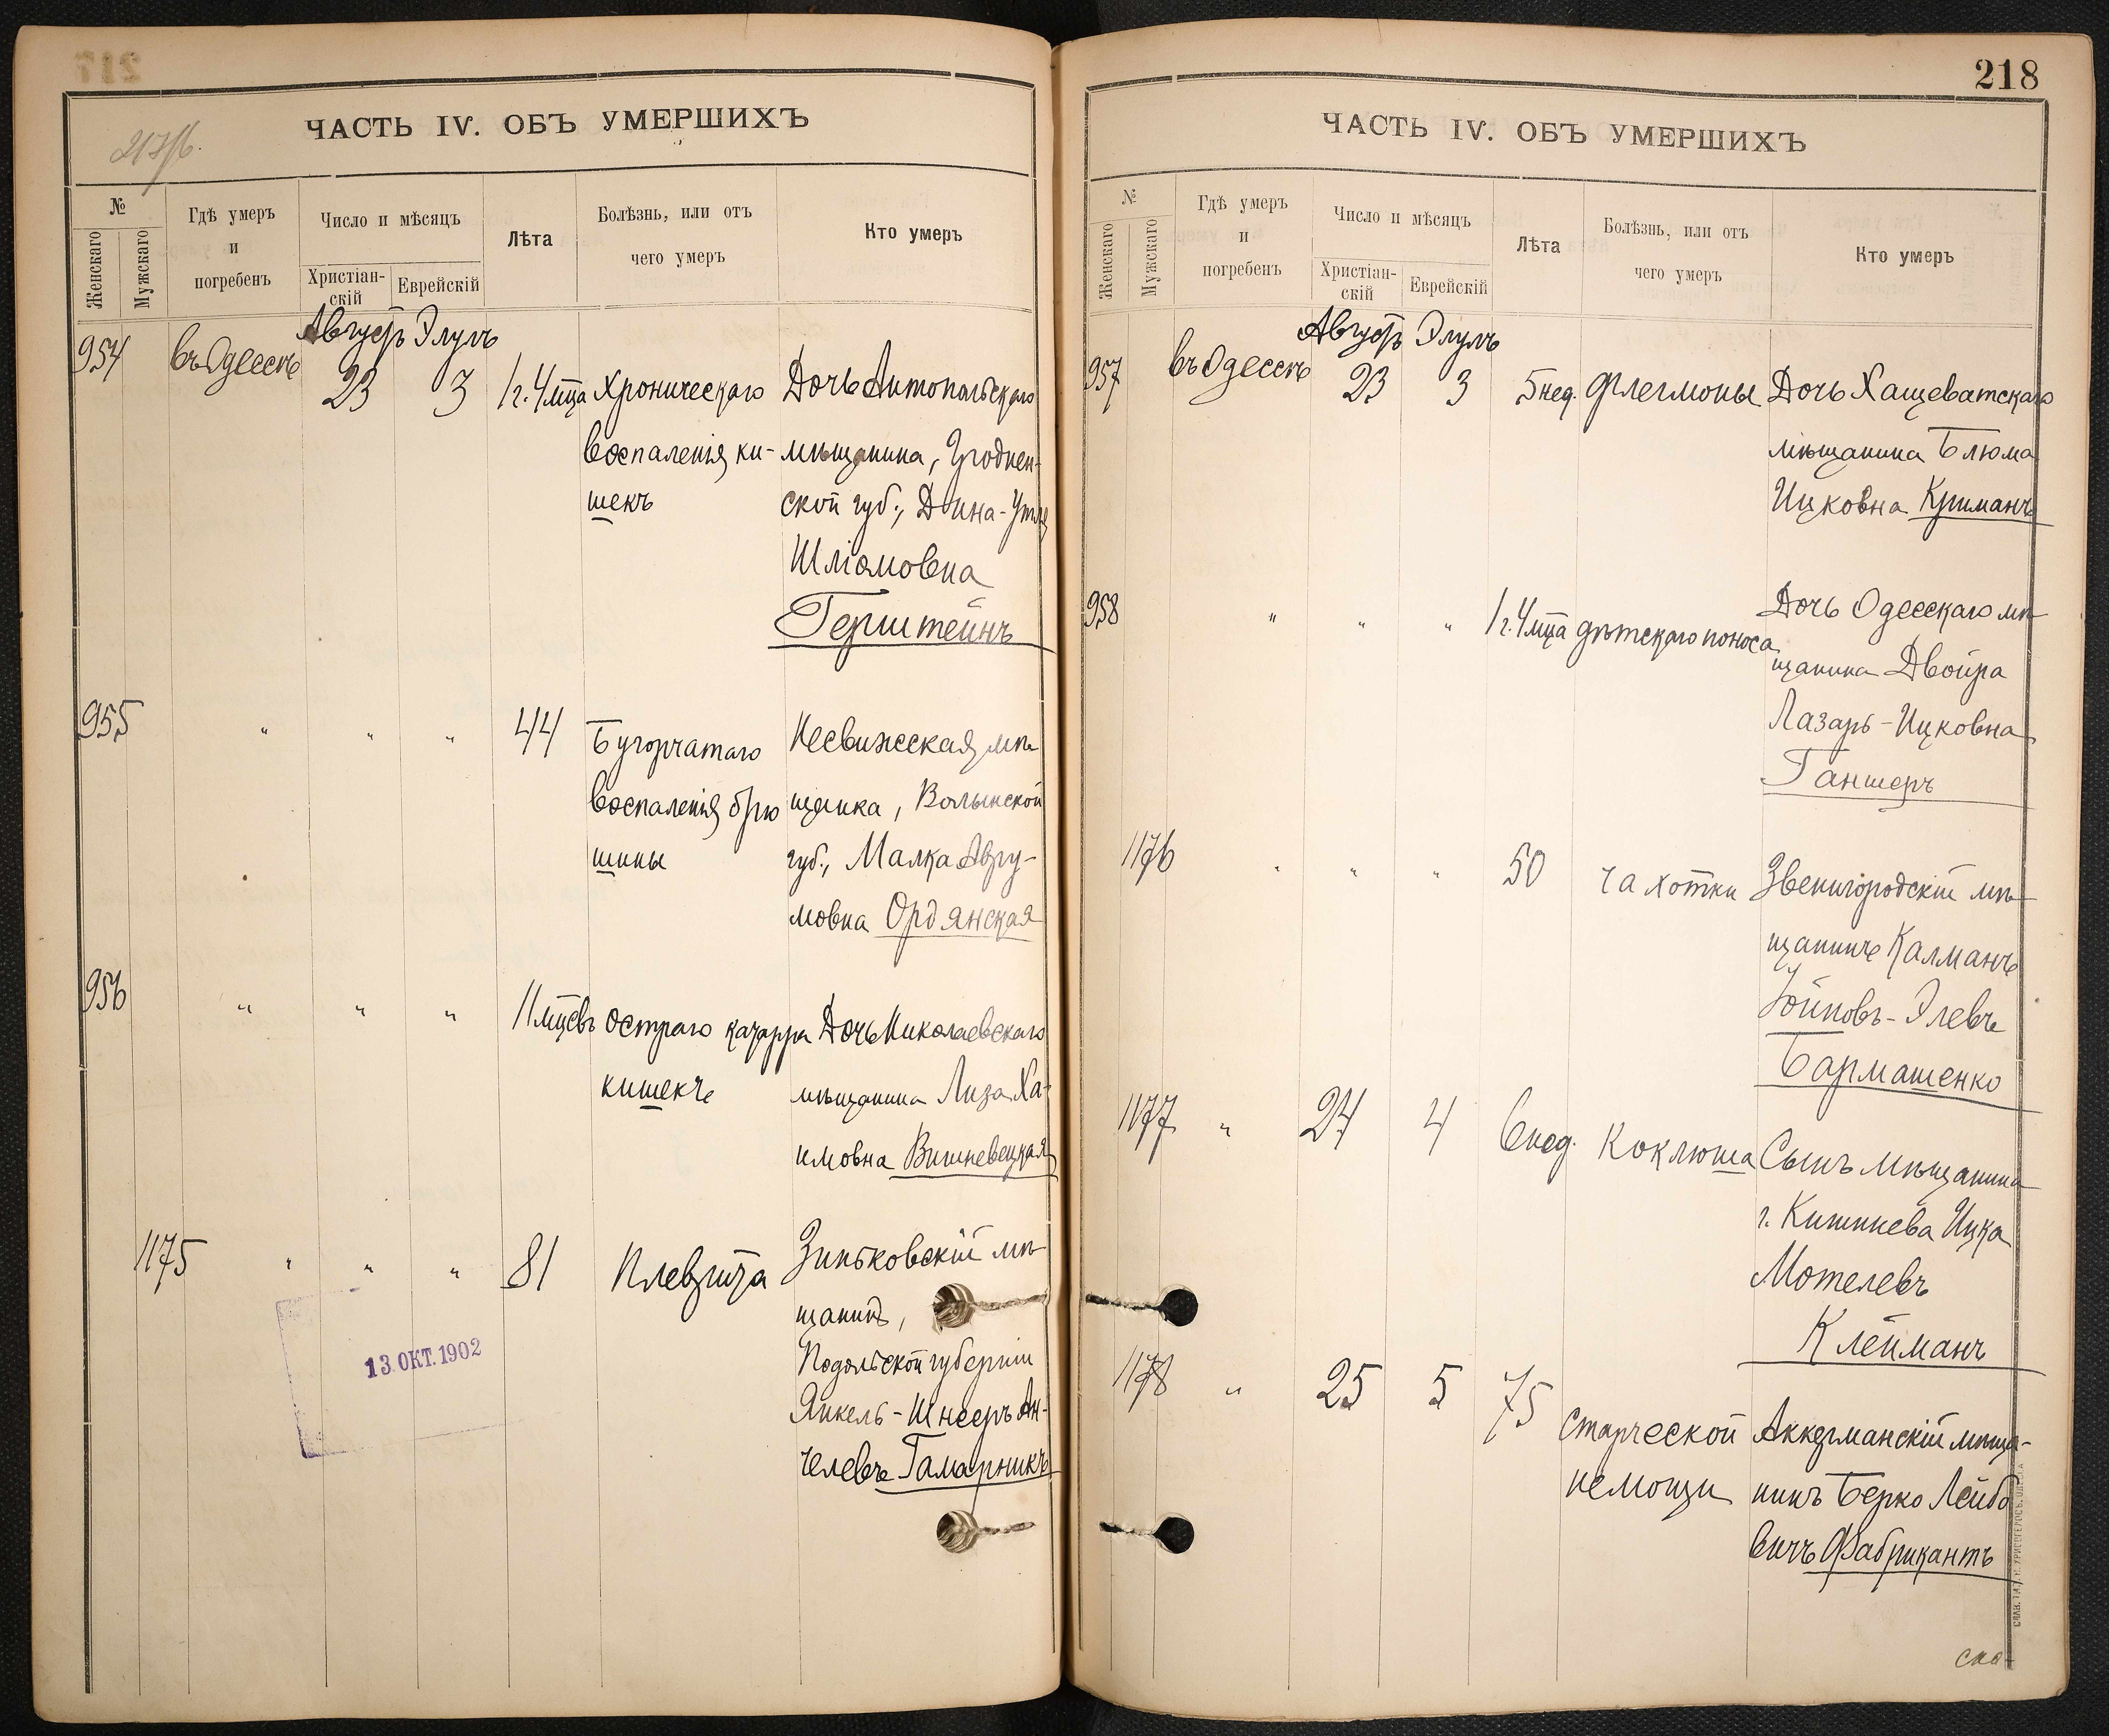 217
217об.
ЧАСТЬ IV. ОБЪ УМЕРШИХЪ
№
Женскаго
Мужскаго
Гдѣ умеръ
и
погребенъ
Число и мѣсяцъ
Христіан-
скій
Еврейскій
Лѣта
Болѣзнь, или отъ
чего умеръ
Кто умеръ
Августъ Элулъ
954 въ Одессѣ 23 3 1 г. 4 мца Хроническаго Дочь Антопольскаго
воспаленія ки- мѣщанина, Гроднен-
шекъ ской губ., Дина-
Шліомовна
Герштейнъ
955 " " " 44 Бугорчатаго Несвижсская мѣ-
воспаленія брю щанка, Волынской
шины губ., Малка Авру-
мовна Ордянская
956 " " " 11 мцевъ остраго катарра Дочь Николаевскаго
кишекъ мѣщанина Лиза Ха-
имовна Вишневецкая
1175 " " " 81 Плеврита Зиньковскій мѣ-
щанинъ,
Подольской губерніи
Янкель-Шнееръ Ан-
челевъ Гамарникъ
13 ОКТ. 1902
218
ЧАСТЬ IV. ОБЪ УМЕРШИХЪ
№
Женскаго
Мужскаго
Гдѣ умеръ
и
погребенъ
Число и мѣсяцъ
Христіан-
скій
Еврейскій
Лѣта
Болѣзнь, или отъ
чего умеръ
Кто умеръ
Августъ Элулъ
957 въ Одессѣ 23 3 5 нед. Флегмоны Дочь Хащеватскаго
мѣщанина Блюма
Ицковна Криманъ
958 " " " 1 г. 4 мца дѣтскаго поноса Дочь Одесскаго мѣ-
щанина Двойра
Лазарь-Ицковна
Ганшеръ
1176 " " " 50 чахотки Звенигородскій мѣ-
щанинъ Калманъ
Іойновъ-Элевъ
Бармашенко
1177 " 24 4 6 нед. Коклюша Сынъ мѣщанина
г. Кишинева Ицка
Мотелевъ
Клейманъ
1178 " 25 5 75 Старческой Аккерманскій мѣща-
немощи нинъ Берко Лейбо
вичъ Фабрикантъ